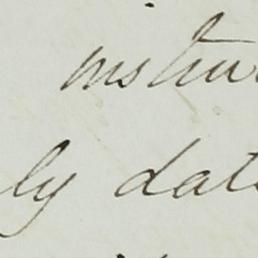 instru
ly date